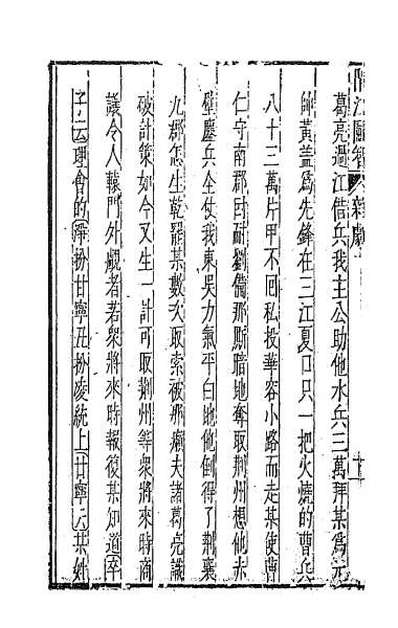 隔江鬬智 雜劇
葛亮過江借兵我主公助他水兵三萬拜某爲元
帥黃盖爲先鋒在三江夏口只一把火燒的曹兵
八十三萬片甲不囘私投華容小路而走某使曹
仁守南郡囙耐劉備那厮暗地奪取荆州想他赤
壁鏖兵全仗我東吳力氣平白地他倒得了荆襄
九郡怎生乾罷某數次取索被那癩夫諸葛亮識
破計策如今又生一計可取荆州等衆將來時商
議令人轅門外覷者若衆將來時報復某知道卒
子云理會的淨扮甘寧丑扮凌統上甘寧云某姓